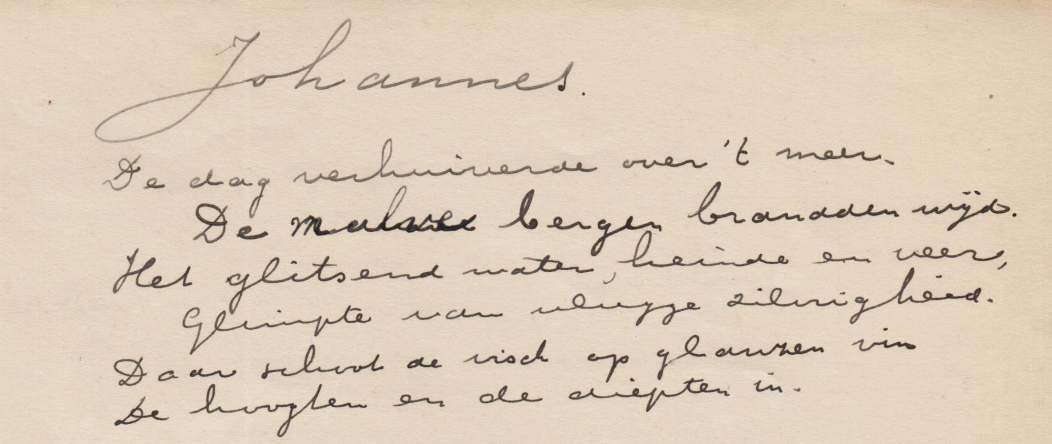 Johannes.
De dag verhuiverde over 't meer.
De malve bergen brandden wijd.
Het glitsend water, heinde en veer,
Glimpte van vlugge zilvrigheid.
Daar schoot de visch op glanzen vin
De hoogten en de diepten in.